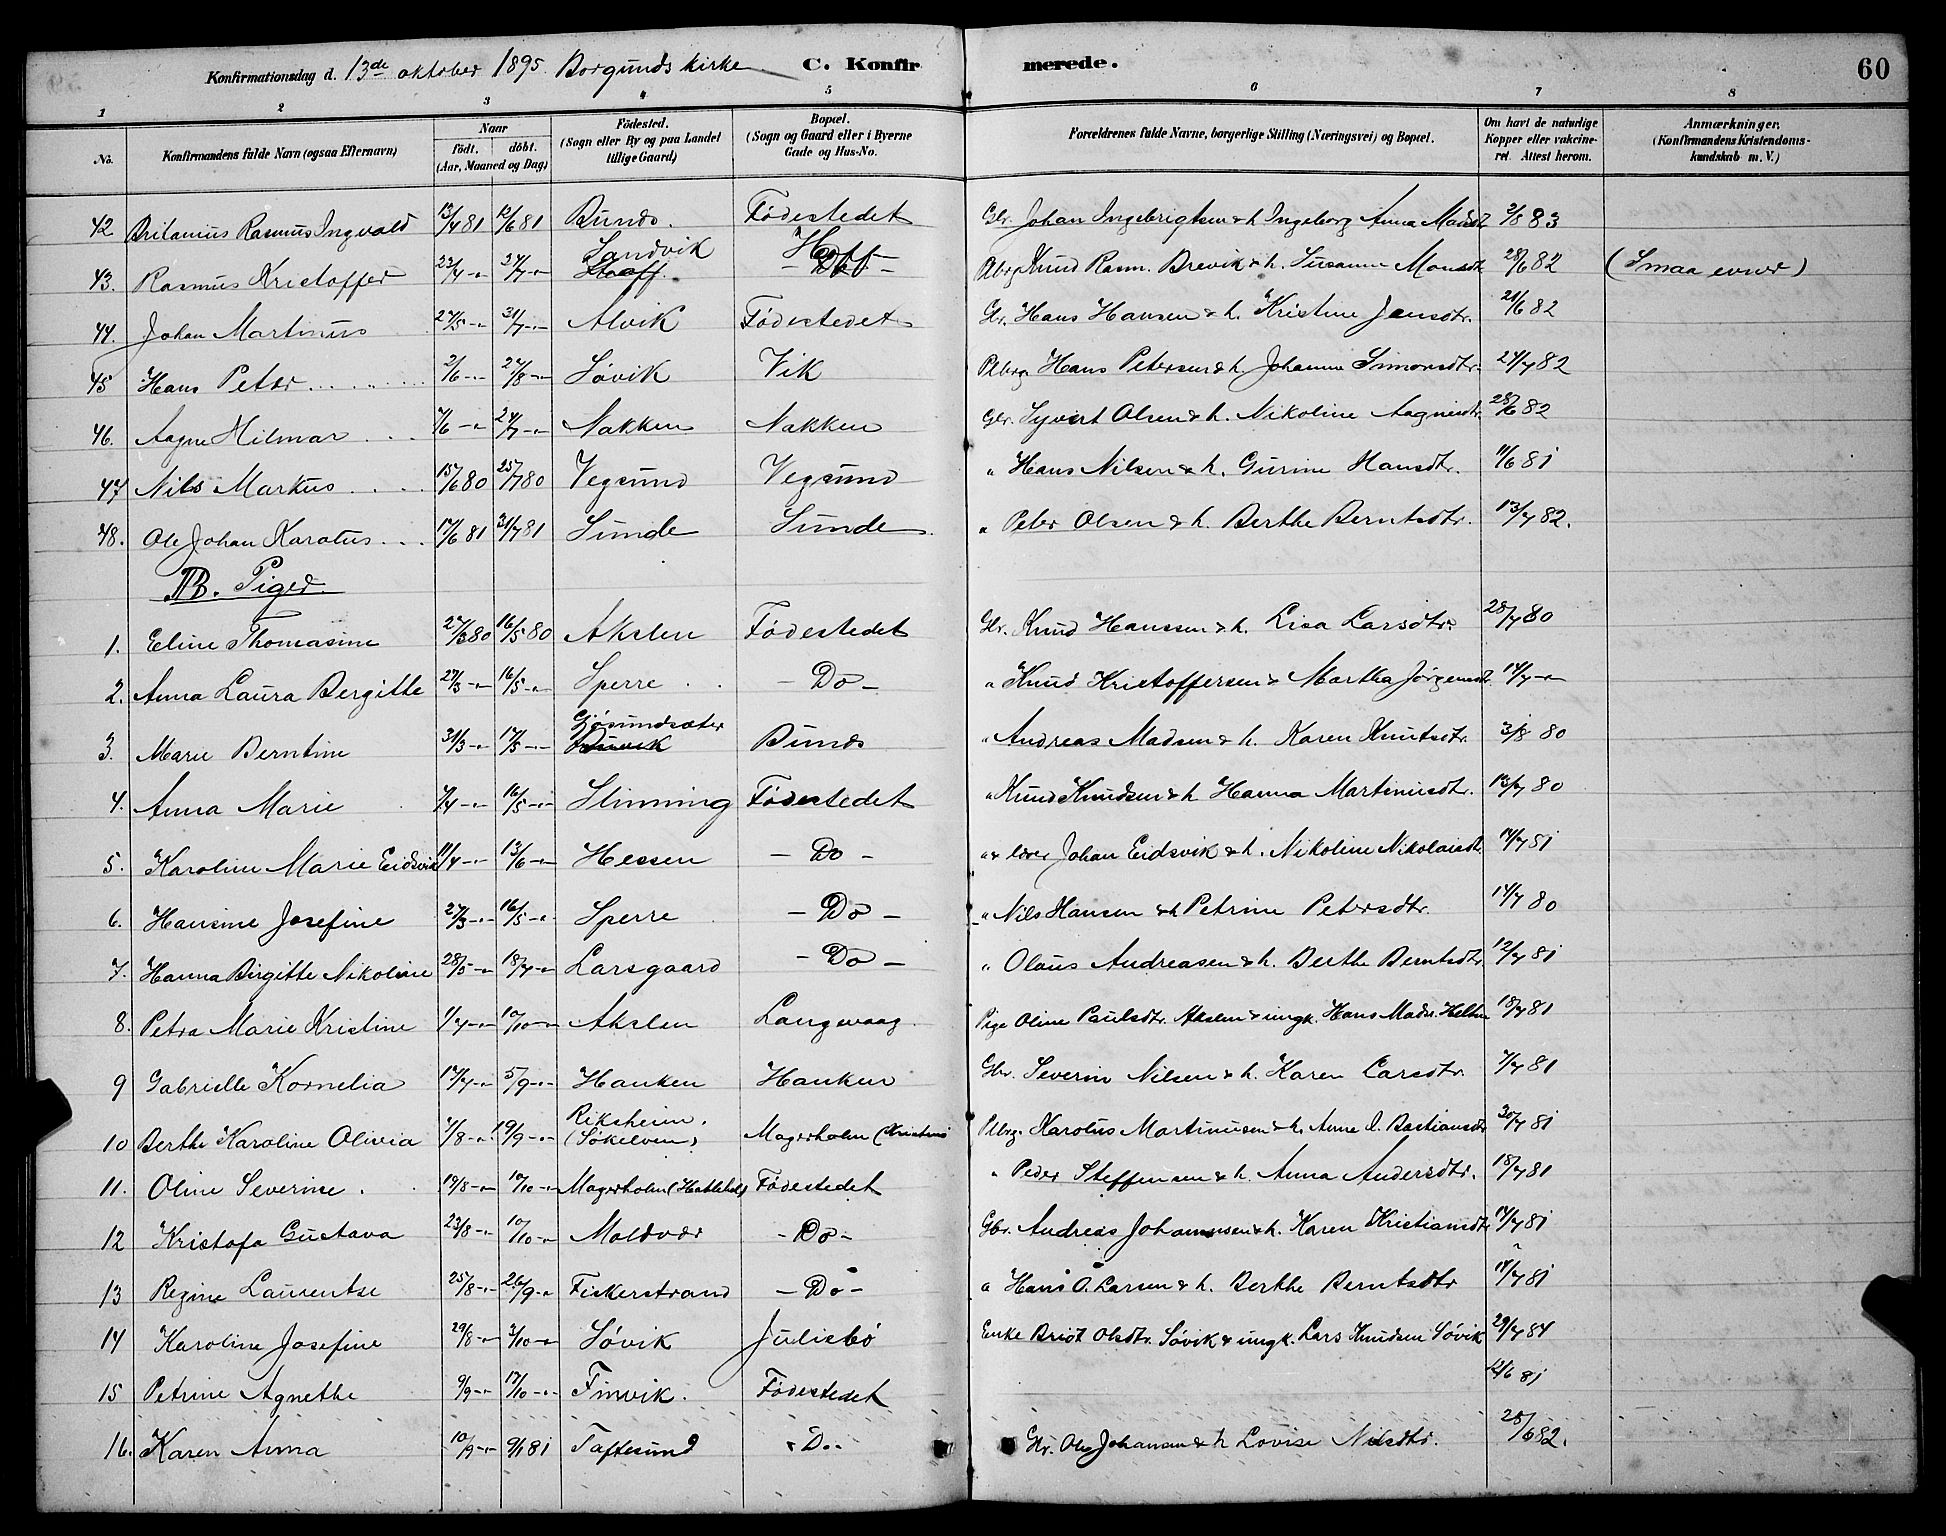 Konfirmationsdag d. 13de oktober 1895. Borgunds kirke C. Konfirmerede. 60
1 2 3 4 5 6 7 8
No. Konfirmandens fulde Navn (ogsaa Efternavn) Naar født. døbt. (Aar, Maaned og Dag) Fødested. (Sogn eller By og paa Landet tillige Gaard) Bopæl. (Sogn og Gaard eller i Byerne Gade og Hus-No. Forældrenes fulde Navne, borgerlige Stilling (Næringsvei) og Bopæl. Om havt de naturlige Kopper eller vakcineret. Attest herom. Anmærkninger. (Konfirmandens Kristendomskundskab m. V.)
42 Britanius Rasmus Ingvald 13/4 81 12/6 81 Bunds. Fødestedet Gbr. Johan Ingebrigtsen & h. Ingeborg Anna Mansdtr. 2/8 83
43. Rasmus Kristoffer 23/4 -"- 24/7 -"- Sandvik Hoff Plbrg Knud Rasm. Brevik & h. Susanne Monsdtr. 28/6 82 (Smaa evner)
44. Johan Martinus 27/5 -"- 31/7 -"- Alvik Fødestedet Gbr. Hans Hansen & h. Kristine Jensdtr. 21/6 82
45 Hans Peter 2/6 -"- 27/8 -"- Søvik Vik Plbrg Hans Petersen & h. Johanne Simonsdtr. 24/7 82
46. Aagne Hilmar 7/6 -"- 24/7 -"- Nakken Nakken Gbr. Syvert Olsen & h. Nikoline Aagnesdtr. 28/6 82
47 Nils Markus 15/6 80 25/7 80 Vegsund Vegsund " Hans Nilsen & h. Gurine Hansdtr. 11/6 81
48. Ole Johan Karolus 17/6 81 31/7 81 Sunde Sunde " Peter Olsen & h. Berthe Berntsdtr. 13/7 82.
B. Piger
1. Eline Thomasine 27/3 80 16/5 80 Akslen Fødestedet Gbr. Knud Hanssen & h. Lisa Larsdtr. 28/7 80
2. Anna Laura Bergitte 27/3 -"- 16/5 -"- Sperre - Do - " Knud Kristoffersen & Martha Jørgensdtr. 14/7 -"-
3. Marie Berntine 31/3 -"- 17/5 -"- Gjøsundsæter Bunds " Andreas Madsen & h. Karen Knutsdtr. 3/8 80
4. Anna Marie 7/4 -"- 16/5 -"- Slinning Fødestedet " Knud Knudsen & h Hanna Martinusdtr. 13/7 80
5. Karoline Marie Eidsvik 11/4 -"- 13/6 -"- Hessen - Do - " & lærer Johan Eidsvik & h. Nikoline Nikolaisdtr. 14/7 81
6. Hansine Josefine 27/3 -"- 16/5 -"- Sperre - Do - " Nils Hansen & h Petrine Petersdtr. 14/7 80
7. Hanna Birgitte Nikoline 28/5 -"- 18/7 -"- Larsgaard - Do - " Olaus Andreasen & h. Berthe Berntsdtr. 12/7 81
8. Petra Marie Kristine 1/7 -"- 10/10 -"- Akslen Langevaag. Pige Oline Paulsdtr. Akslen & ungk. Hans Mads. Heltne 18/7 81
9 Gabrielle Kornelia 17/7 -"- 5/9 -"- Hanken Hanken Gbr. Severin Nilsen & h. Karen Larsdtr 7/7 81
10 Berthe Karoline Olivia 7/8 -"- 19/9 -"- Riksheim. (Søkelven) Magerholm (Kristens Plbrg. Karolus Martinusen & h. Anne L. Bastiansdtr. 30/7 81
11. Oline Severine. 19/8 -"- 10/10 -"- Magerholm (Hatlehol) Fødestedet " Peder Steffensen & h. Anna Andersdtr. 18/7 81
12 Kristofa Gustava 23/8 -"- 10/10 -"- Moldvær - Do - Gbr. Andreas Johannsen & h. Karen Kristiansdtr. 14/7 81
13 Regine Laurentse 25/8 -"- 26/9 -"- Fiskerstrand - Do - " Hans O. Larsen & h. Berthe Berntsdtr 14/7 81
14 Karoline Josefine 29/8 -"- 3/10 -"- Søvik Julisbø Enke Briot Olsdtr. Søvik & ungk. Lars Knudsen Søvik 29/7 84
15 Petrine Agnethe 9/9 -"- 17/10 -"- Finvik. Fødestedet 12/6 81
16. Karen Anna 10/9 -"- 9/1 81 Taftesund - D - Gbr. Ole Johansen & h Lovise Nilsdtr. 28/6 82.